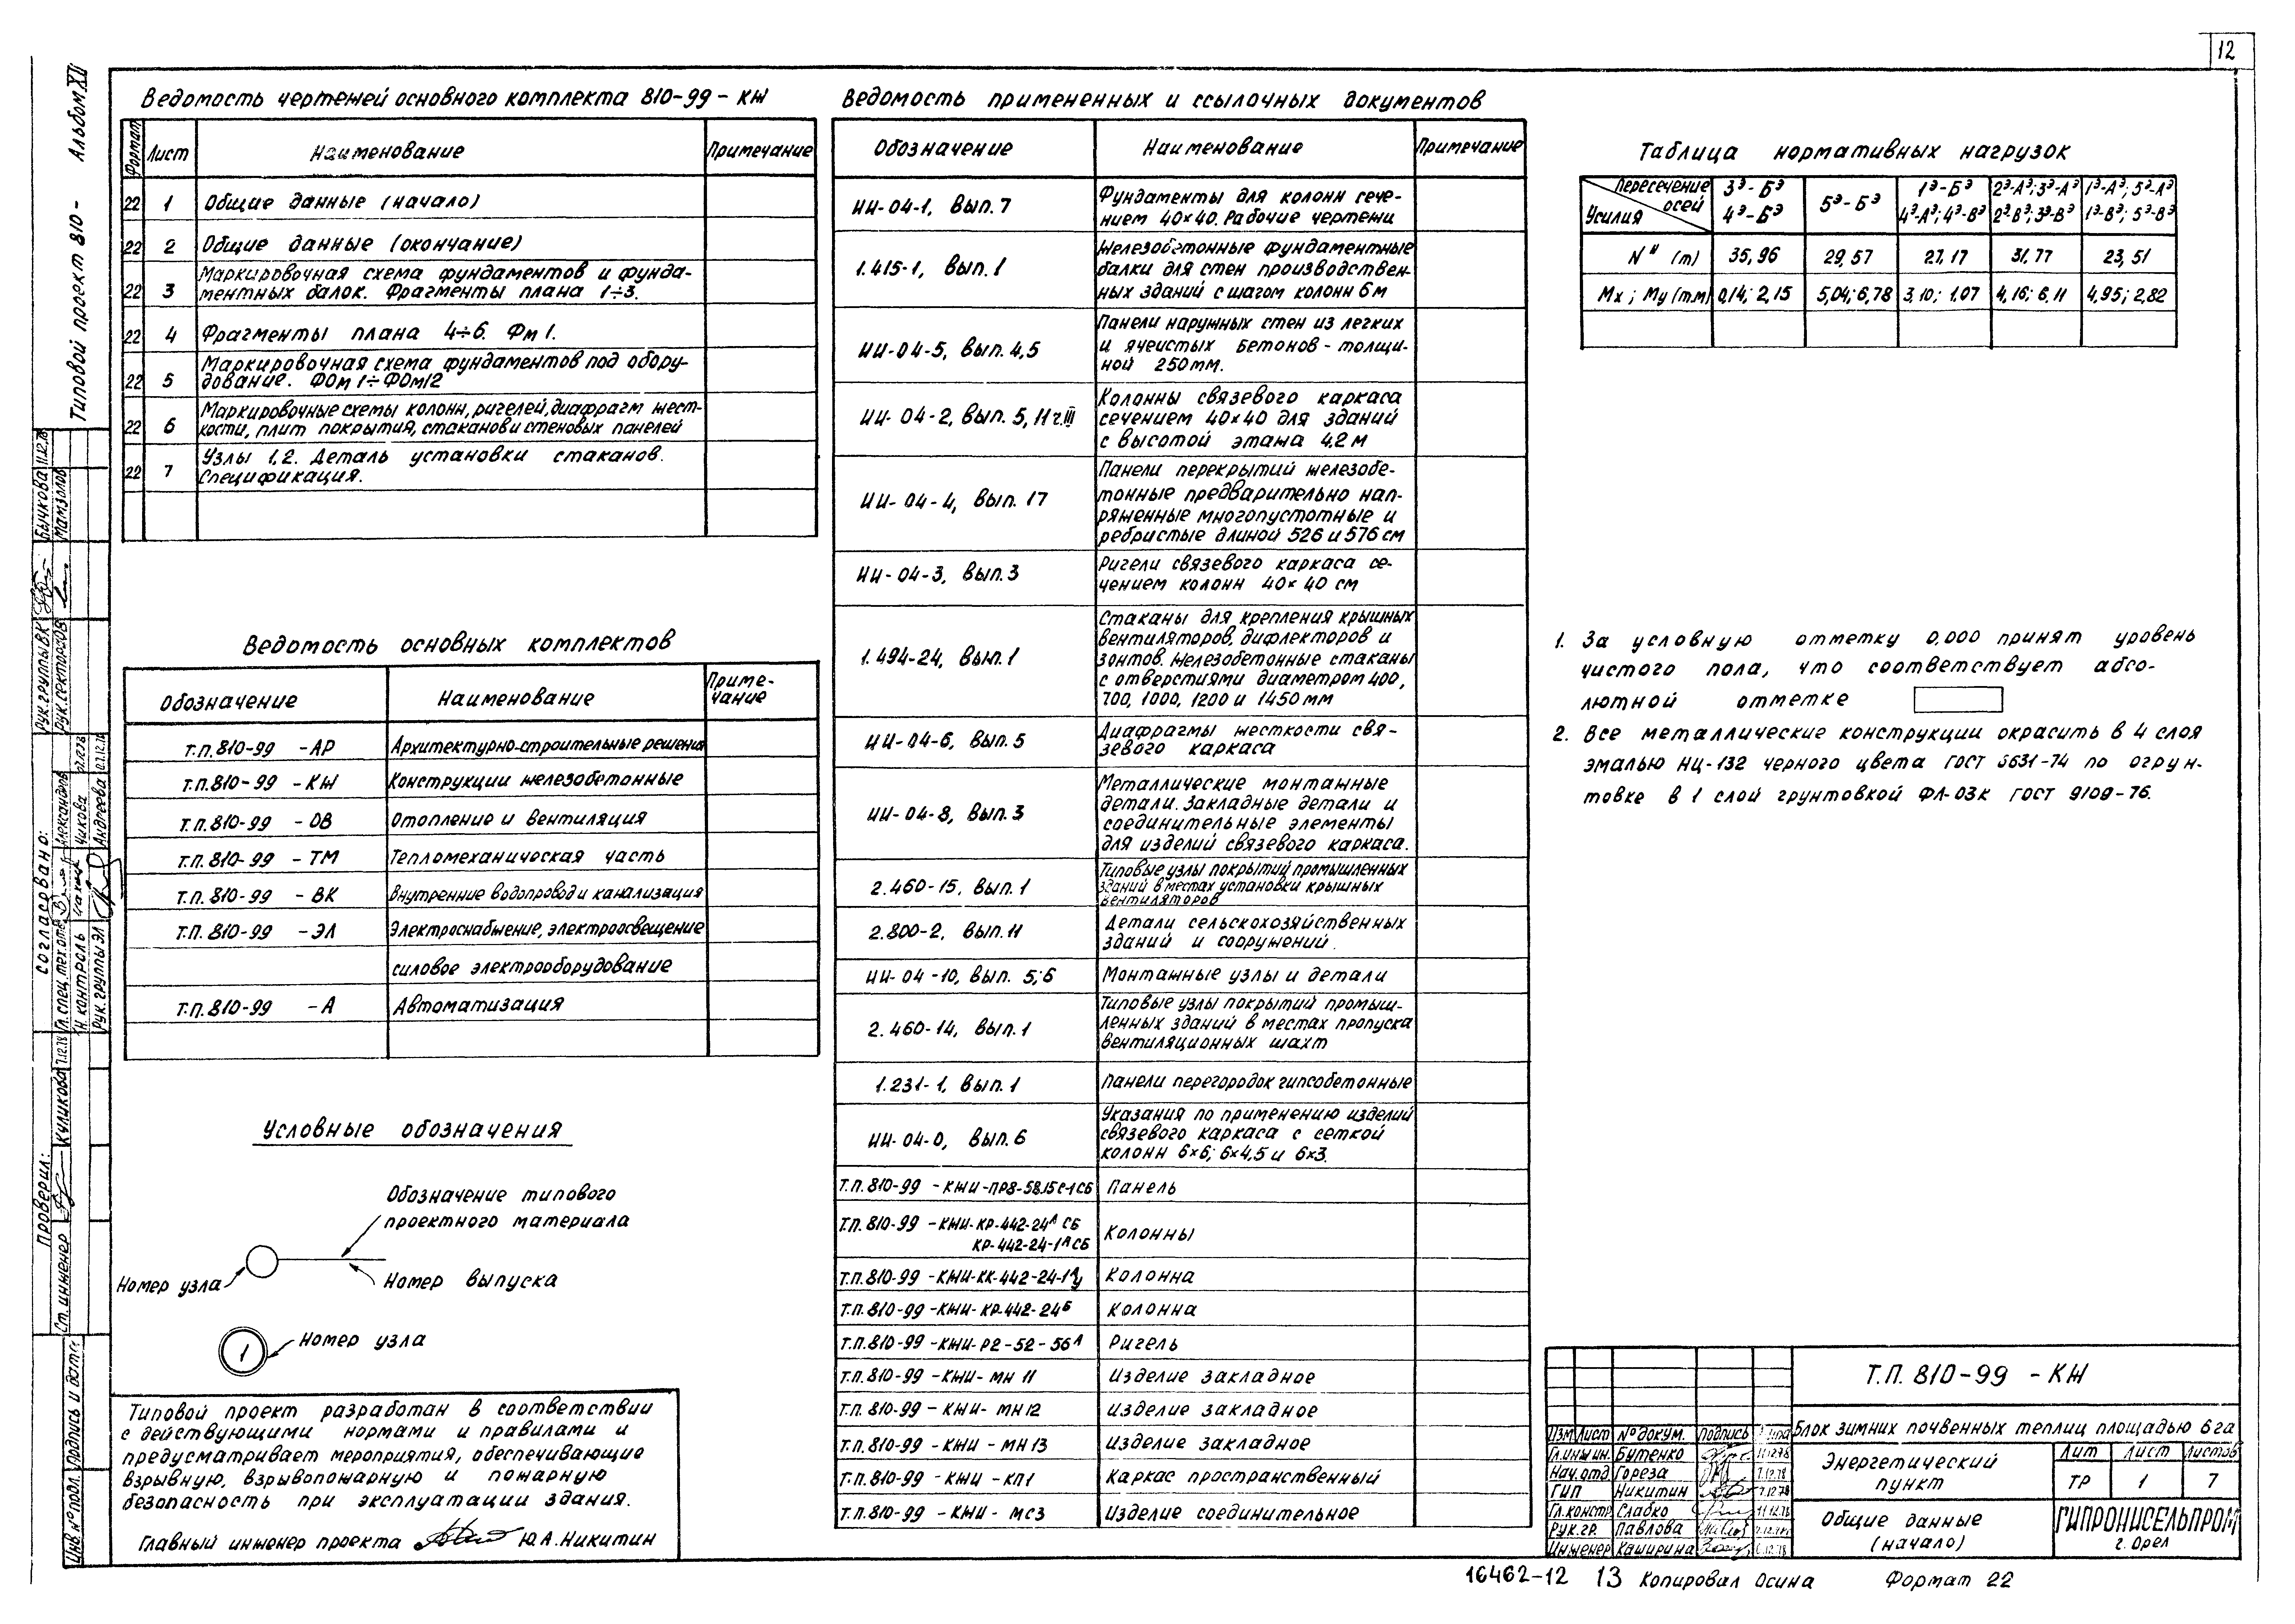 12
Типовой проект 810-   Альбом XII
Ведомость чертежей основного комплекта 810-99-КЖ
Формат Лист Наименование Примечание
22 1 Общие данные (начало)
22 2 Общие данные (окончание)
22 3 Маркировочная схема фундаментов и фунда-
ментных балок. Фрагменты плана 1÷3.
22 4 Фрагменты плана 4÷6. Фм 1.
22 5 Маркировочная схема фундаментов под обору-
дование. ФОм 1÷ФОм12
22 6 Маркировочные схемы колонн, ригелей, диафрагм жест-
кости, плит покрытия, стаканов и стеновых панелей
22 7 Узлы 1,2. Деталь установки стаканов.
Спецификация.
Ведомость основных комплектов
Обозначение Наименование Приме-
чание
Т.П. 810-99 -АР Архитектурно-строительные решения
Т.П. 810-99 -КЖ Конструкции железобетонные
Т.П. 810-99 -ОВ Отопление и вентиляция
Т.П. 810-99 -ТМ Тепломеханическая часть
Т.П. 810-99 -ВК Внутренние водопровод и канализация
Т.П. 810-99 -ЭЛ Электроснабжение, электроосвещение
силовое электрооборудование
Т.П. 810-99 -А Автоматизация
Условные обозначения
Обозначение типового
проектного материала
Номер узла
Номер выпуска
1
Номер узла
Типовой проект разработан в соответствии
с действующими нормами и правилами и
предусматривает мероприятия, обеспечивающие
взрывную, взрывопожарную и пожарную
безопасность при эксплуатации здания.
Главный инженер проекта Ю.А. Никитин
Ведомость примененных и ссылочных документов
Обозначение Наименование Примечание
ИИ-04-1, вып. 7 Фундаменты для колонн сече-
нием 40×40. Рабочие чертежи
1.415-1, вып. 1 Железобетонные фундаментные
балки для стен производствен-
ных зданий с шагом колонн 6 м
ИИ-04-5, вып. 4,5 Панели наружных стен из легких
и ячеистых бетонов - толщи-
ной 250 мм.
ИИ-04-2, вып. 5, 11 ч. III Колонны связевого каркаса
сечением 40×40 для зданий
с высотой этажа 4,2 м
ИИ-04-4, вып. 17 Панели перекрытий железобе-
тонные предварительно нап-
ряженные многопустотные и
ребристые длиной 526 и 576 см
ИИ-04-3, вып. 3 Ригели связевого каркаса се-
чением колонн 40×40 см
1.494-24, вып. 1 Стаканы для крепления крышных
вентиляторов, дифлекторов и
зонтов. Железобетонные стаканы
с отверстиями диаметром 400,
700, 1000, 1200 и 1450 мм
ИИ-04-6, вып. 5 Диафрагмы жесткости свя-
зевого каркаса
ИИ-04-8, вып. 3 Металлические монтажные
детали. Закладные детали и
соединительные элементы
для изделий связевого каркаса.
2.460-15, вып. 1 Типовые узлы покрытий промышленных
зданий в местах установки крышных
вентиляторов
2.800-2, вып. 11 Детали сельскохозяйственных
зданий и сооружений.
ИИ-04-10, вып. 5;6 Монтажные узлы и детали
2.460-14, вып. 1 Типовые узлы покрытий промыш-
ленных зданий в местах пропуска
вентиляционных шахт
1.231-1, вып. 1 Панели перегородок гипсобетонные
ИИ-04-0, вып. 6 Указания по применению изделий
связевого каркаса с сеткой
колонн 6×6; 6×4,5 и 6×3.
Т.П. 810-99 -КЖИ-ПР8-58.15с-1СБ Панель
Т.П. 810-99 -КЖИ-КР-442-24А СБ
КР-442-24-1А СБ Колонны
Т.П. 810-99 -КЖИ-КК-442-24-1 Колонна
Т.П. 810-99 -КЖИ-КР-442-24Б Колонна
Т.П. 810-99 -КЖИ-Р2-52-56А Ригель
Т.П. 810-99 -КЖИ-МН 11 Изделие закладное
Т.П. 810-99 -КЖИ-МН12 Изделие закладное
Т.П. 810-99 -КЖИ-МН 13 Изделие закладное
Т.П. 810-99 -КЖИ-КП1 Каркас пространственный
Т.П. 810-99 -КЖИ-МС3 Изделие соединительное
Таблица нормативных нагрузок
Пересечение осей Усилия 3Э-БЭ 4Э-БЭ 5Э-БЭ 1Э-БЭ 4Э-АЭ; 4Э-ВЭ 2Э-АЭ; 3Э-АЭ 2Э-ВЭ; 3Э-ВЭ 1Э-АЭ; 5Э-АЭ 1Э-ВЭ; 5Э-ВЭ
Nн (т) 35,96 29,57 27,17 31,77 23,51
Mx; My (тм) 0,14; 2,15 5,04; 6,78 3,10; 1,07 4,16; 6,11 4,95; 2,82
1. За условную отметку 0,000 принят уровень
чистого пола, что соответствует абсо-
лютной отметке
2. Все металлические конструкции окрасить в 4 слоя
эмалью НЦ-132 черного цвета ГОСТ 6631-74 по огрун-
товке в 1 слой грунтовкой ФЛ-03К ГОСТ 9109-76.
Т.П. 810-99 -КЖ
Блок зимних почвенных теплиц площадью 6 га
Изм Лист № докум. Подпись
Гл. инж. ин. Бутенко
Нач. отд Гореза 7.12.78
ГИП Никитин 7.12.78
Гл. констр. Сладко 11.12.78
Рук. гр. Павлова
Инженер Каширина
Энергетический
пункт
Лит Лист Листов
ТР 1 7
Общие данные
(начало)
ГИПРОНИСЕЛЬПРОМ
г. Орел
16462-12 13 Копировал Осина Формат 22
Согласовано:
Рук. группы ВК Бычкова 11.12.78
Рук. секторов Мамзолов
Гл. спец. тех. отд. Александров
Н. контроль Чикова
Рук. группы ЭЛ Андреева
Проверил:
Ст. инженер Куликова 7.12.78
Инв. № подл. Подпись и дата